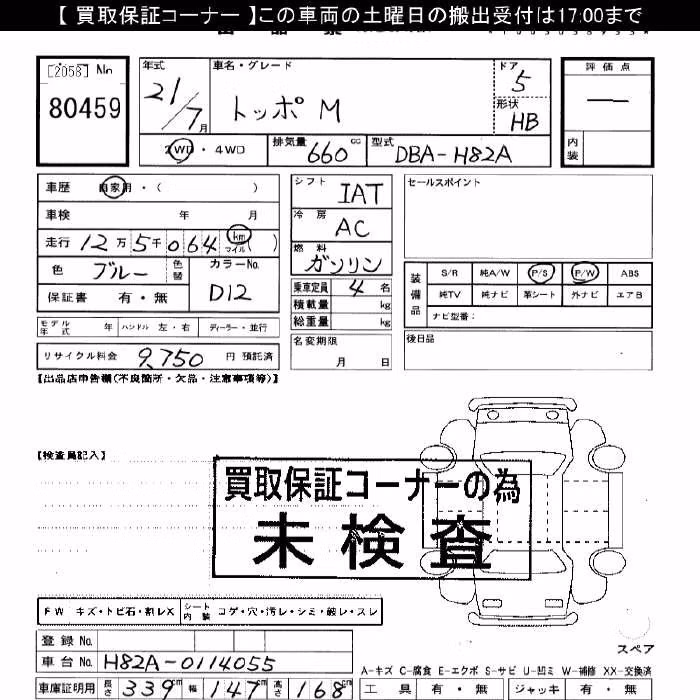 【 買取保証コーナー 】この車両の土曜日の搬出受付は17:00まで
[2058] No
80459
年式
21/7月
車名・グレード
トッポ M
ドア
5
形状
HB
評価点
―
内装
2WD・4WD
排気量 660 cc
型式 DBA-H82A
車歴 自家用・( )
車検 年 月
走行 12万5千064 km マイル( )
色 ブルー 色替
カラーNo. D12
保証書 有・無
モデル年式 年 ハンドル 左・右 ディーラー・並行
リサイクル料金 9,750 円 預託済
シフト IAT
冷房 AC
燃料 ガソリン
乗車定員 4 名
積載量 kg
総重量 kg
名変期限
月 日
セールスポイント
装備品
S/R 純A/W P/S P/W ABS
純TV 純ナビ 革シート 外ナビ エアB
ナビ型番:
後日品
【出品店申告欄(不良箇所・欠品・注意事項等)】
【検査員記入】
買取保証コーナーの為
未検査
FW キズ・トビ石・割レX
シート内装 コゲ・穴・汚レ・シミ・破レ・スレ
登録 No.
車台 No. H82A-0114055
車庫証明用 長さ 339 cm 幅 147 cm 高さ 168 cm
スペア
A-キズ C-腐食 E-エクボ S-サビ U-凹ミ W-補修 XX-交換済
工具 有・無 ジャッキ 有・無